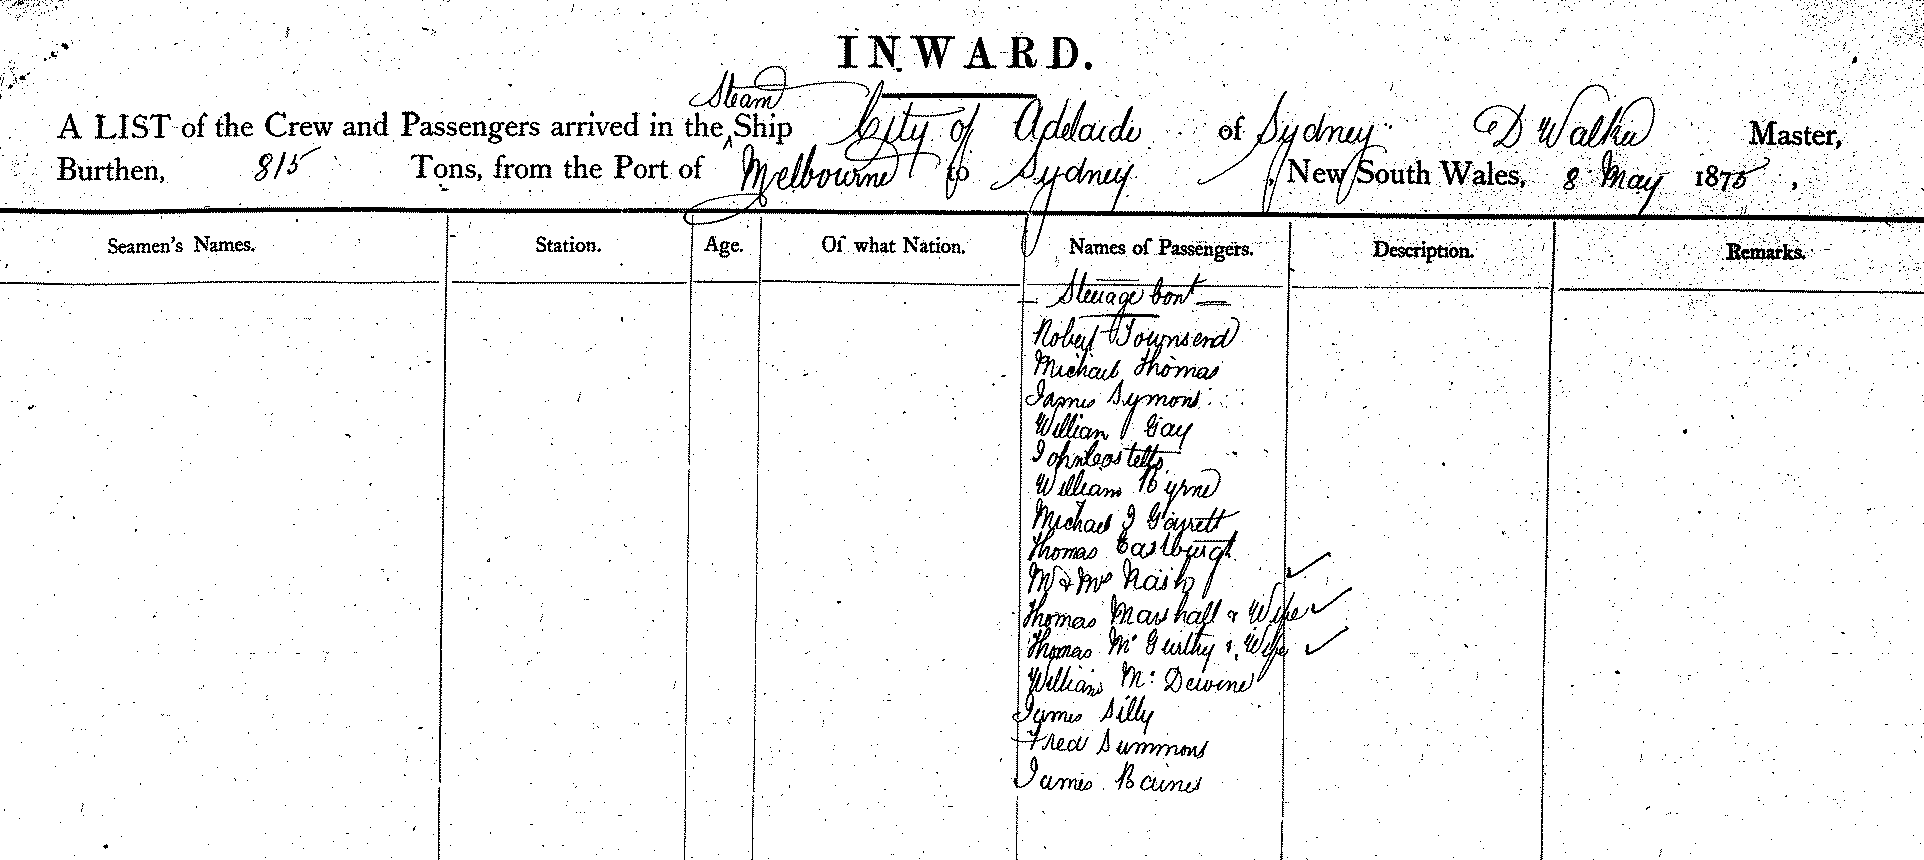 INWARD.
Steam
A LIST of the Crew and Passengers arrived in the ^ Ship City of Adelaide of Sydney D Walker Master,
Burthen, 815 Tons, from the Port of Melbourne to Sydney, New South Wales, 8 May 1875,
Seamen's Names. Station. Age. Of what Nation. Names of Passengers. Description. Remarks.
— Steerage Cont —
Robert Townsend
Michael Thomas
James Symons
William Gay
John Costello
William Byrne
Michael J Garrett
Thomas Eastburgh
Mr & Mrs Nash ✓
Thomas Marshall & Wife ✓
Thomas Mc Gurthy & Wife ✓
William Mc Dewine
James Silly
Fred Summons
James Baines